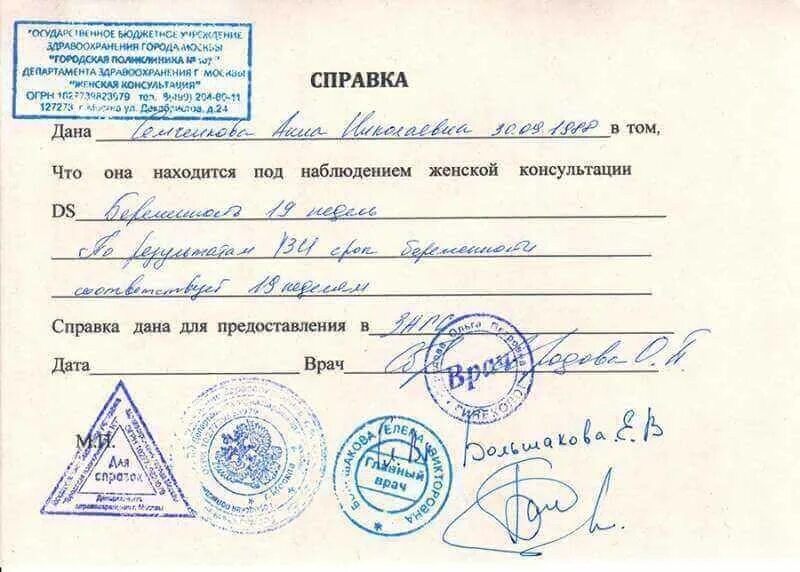 "ГОСУДАРСТВЕННОЕ БЮДЖЕТНОЕ УЧРЕЖДЕНИЕ
ЗДРАВООХРАНЕНИЯ ГОРОДА МОСКВЫ
"ГОРОДСКАЯ ПОЛИКЛИНИКА № 107"
ДЕПАРТАМЕНТА ЗДРАВООХРАНЕНИЯ Г МОСКВЫ
"ЖЕНСКАЯ КОНСУЛЬТАЦИЯ"
ОГРН 1027739823079 тел. 8(499) 204-80-11
127273 г.Москва ул. Декабристов, д.24
СПРАВКА
Дана Семченкова Анна Николаевна 30.09.1988 в том,
Что она находится под наблюдением женской консультации
DS Беременность 19 недель
По результатам УЗИ срок беременности
соответствует 19 неделям
Справка дана для предоставления в ЗАГС
Дата Врач О.П.
Ольга Петровна
Врач
ГИНЕКОЛОГ
М.П.
Для
справок
Департамент
здравоохранения г. Москвы
г. Москва
БОЛЬШАКОВА ЕЛЕНА ВИКТОРОВНА
Главный
врач
Большакова Е.В